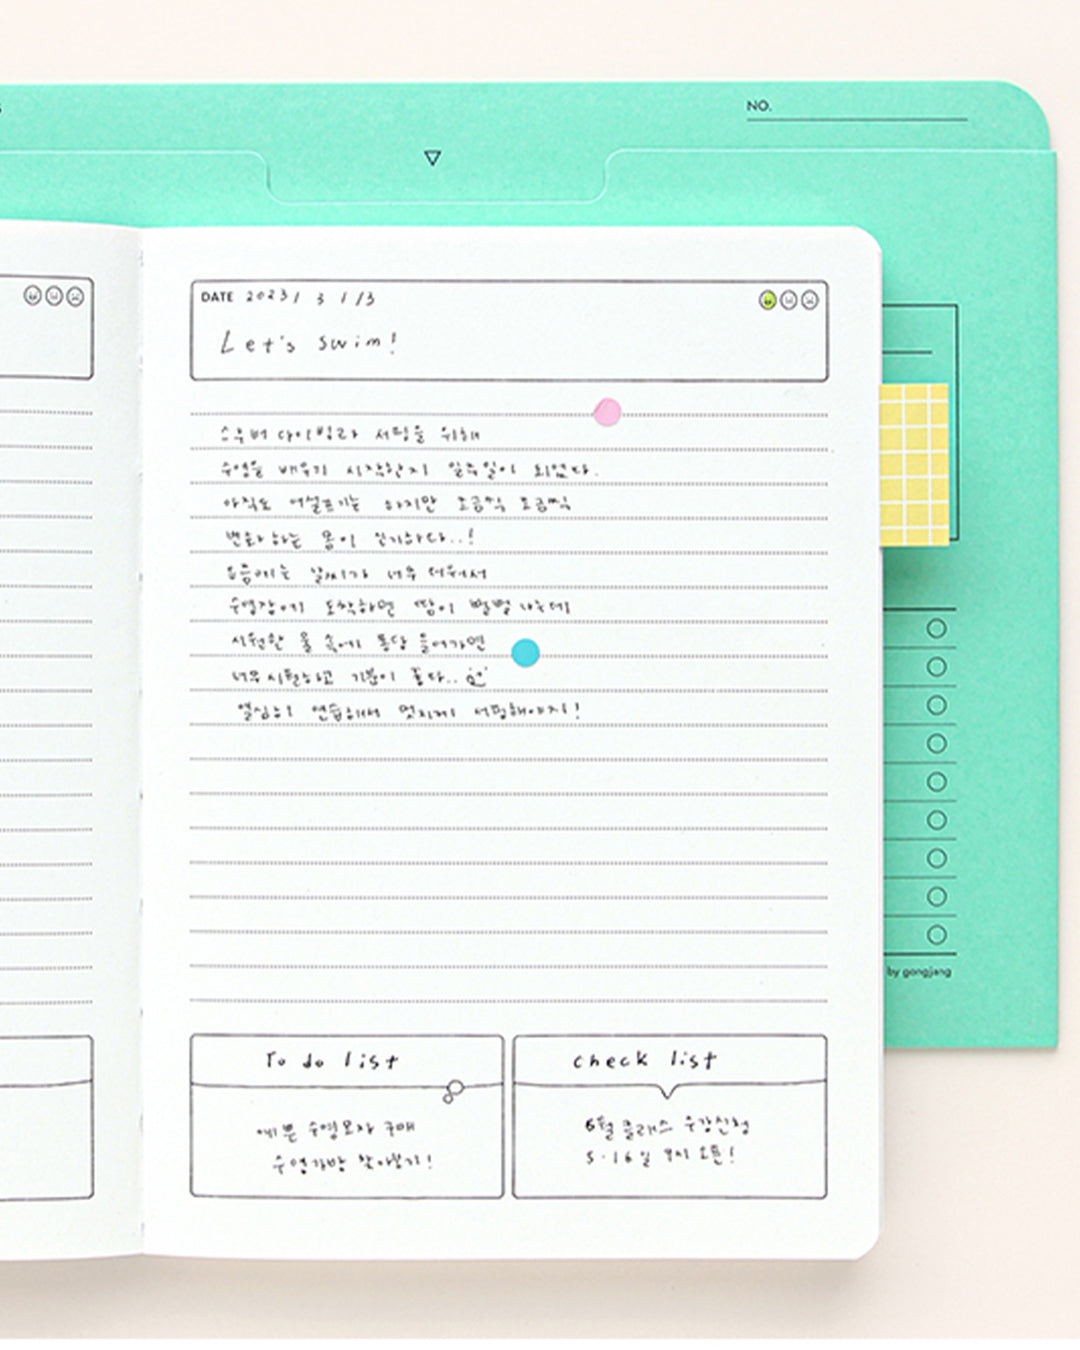 NO.
DATE 2023/ 3 1 /3
Let's swim!
스쿠버 다이빙과 서핑을 위해
수영을 배우기 시작한지 일주일이 되었다.
아직도 어설프기는 하지만 조금씩 조금씩
변화하는 몸이 신기하다..!
요즘에는 날씨가 너무 더워서
수영장에 도착하면 땀이 뻘뻘 나는데
시원한 물 속에 퐁당 들어가면
너무 시원하고 기분이 좋다..
열심히 연습해서 멋지게 서핑해야지!
To do list
예쁜 수영모자 구매
수영가방 찾아보기!
check list
6월 클래스 수강신청
5.16일 9시 오픈!
by gongjang